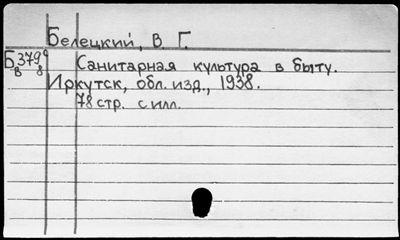 Белецкий, В Г.
Б379 Санитарная культура в быту.
в 8 Иркутск, обл. изд., 1938.
78 стр. с илл.